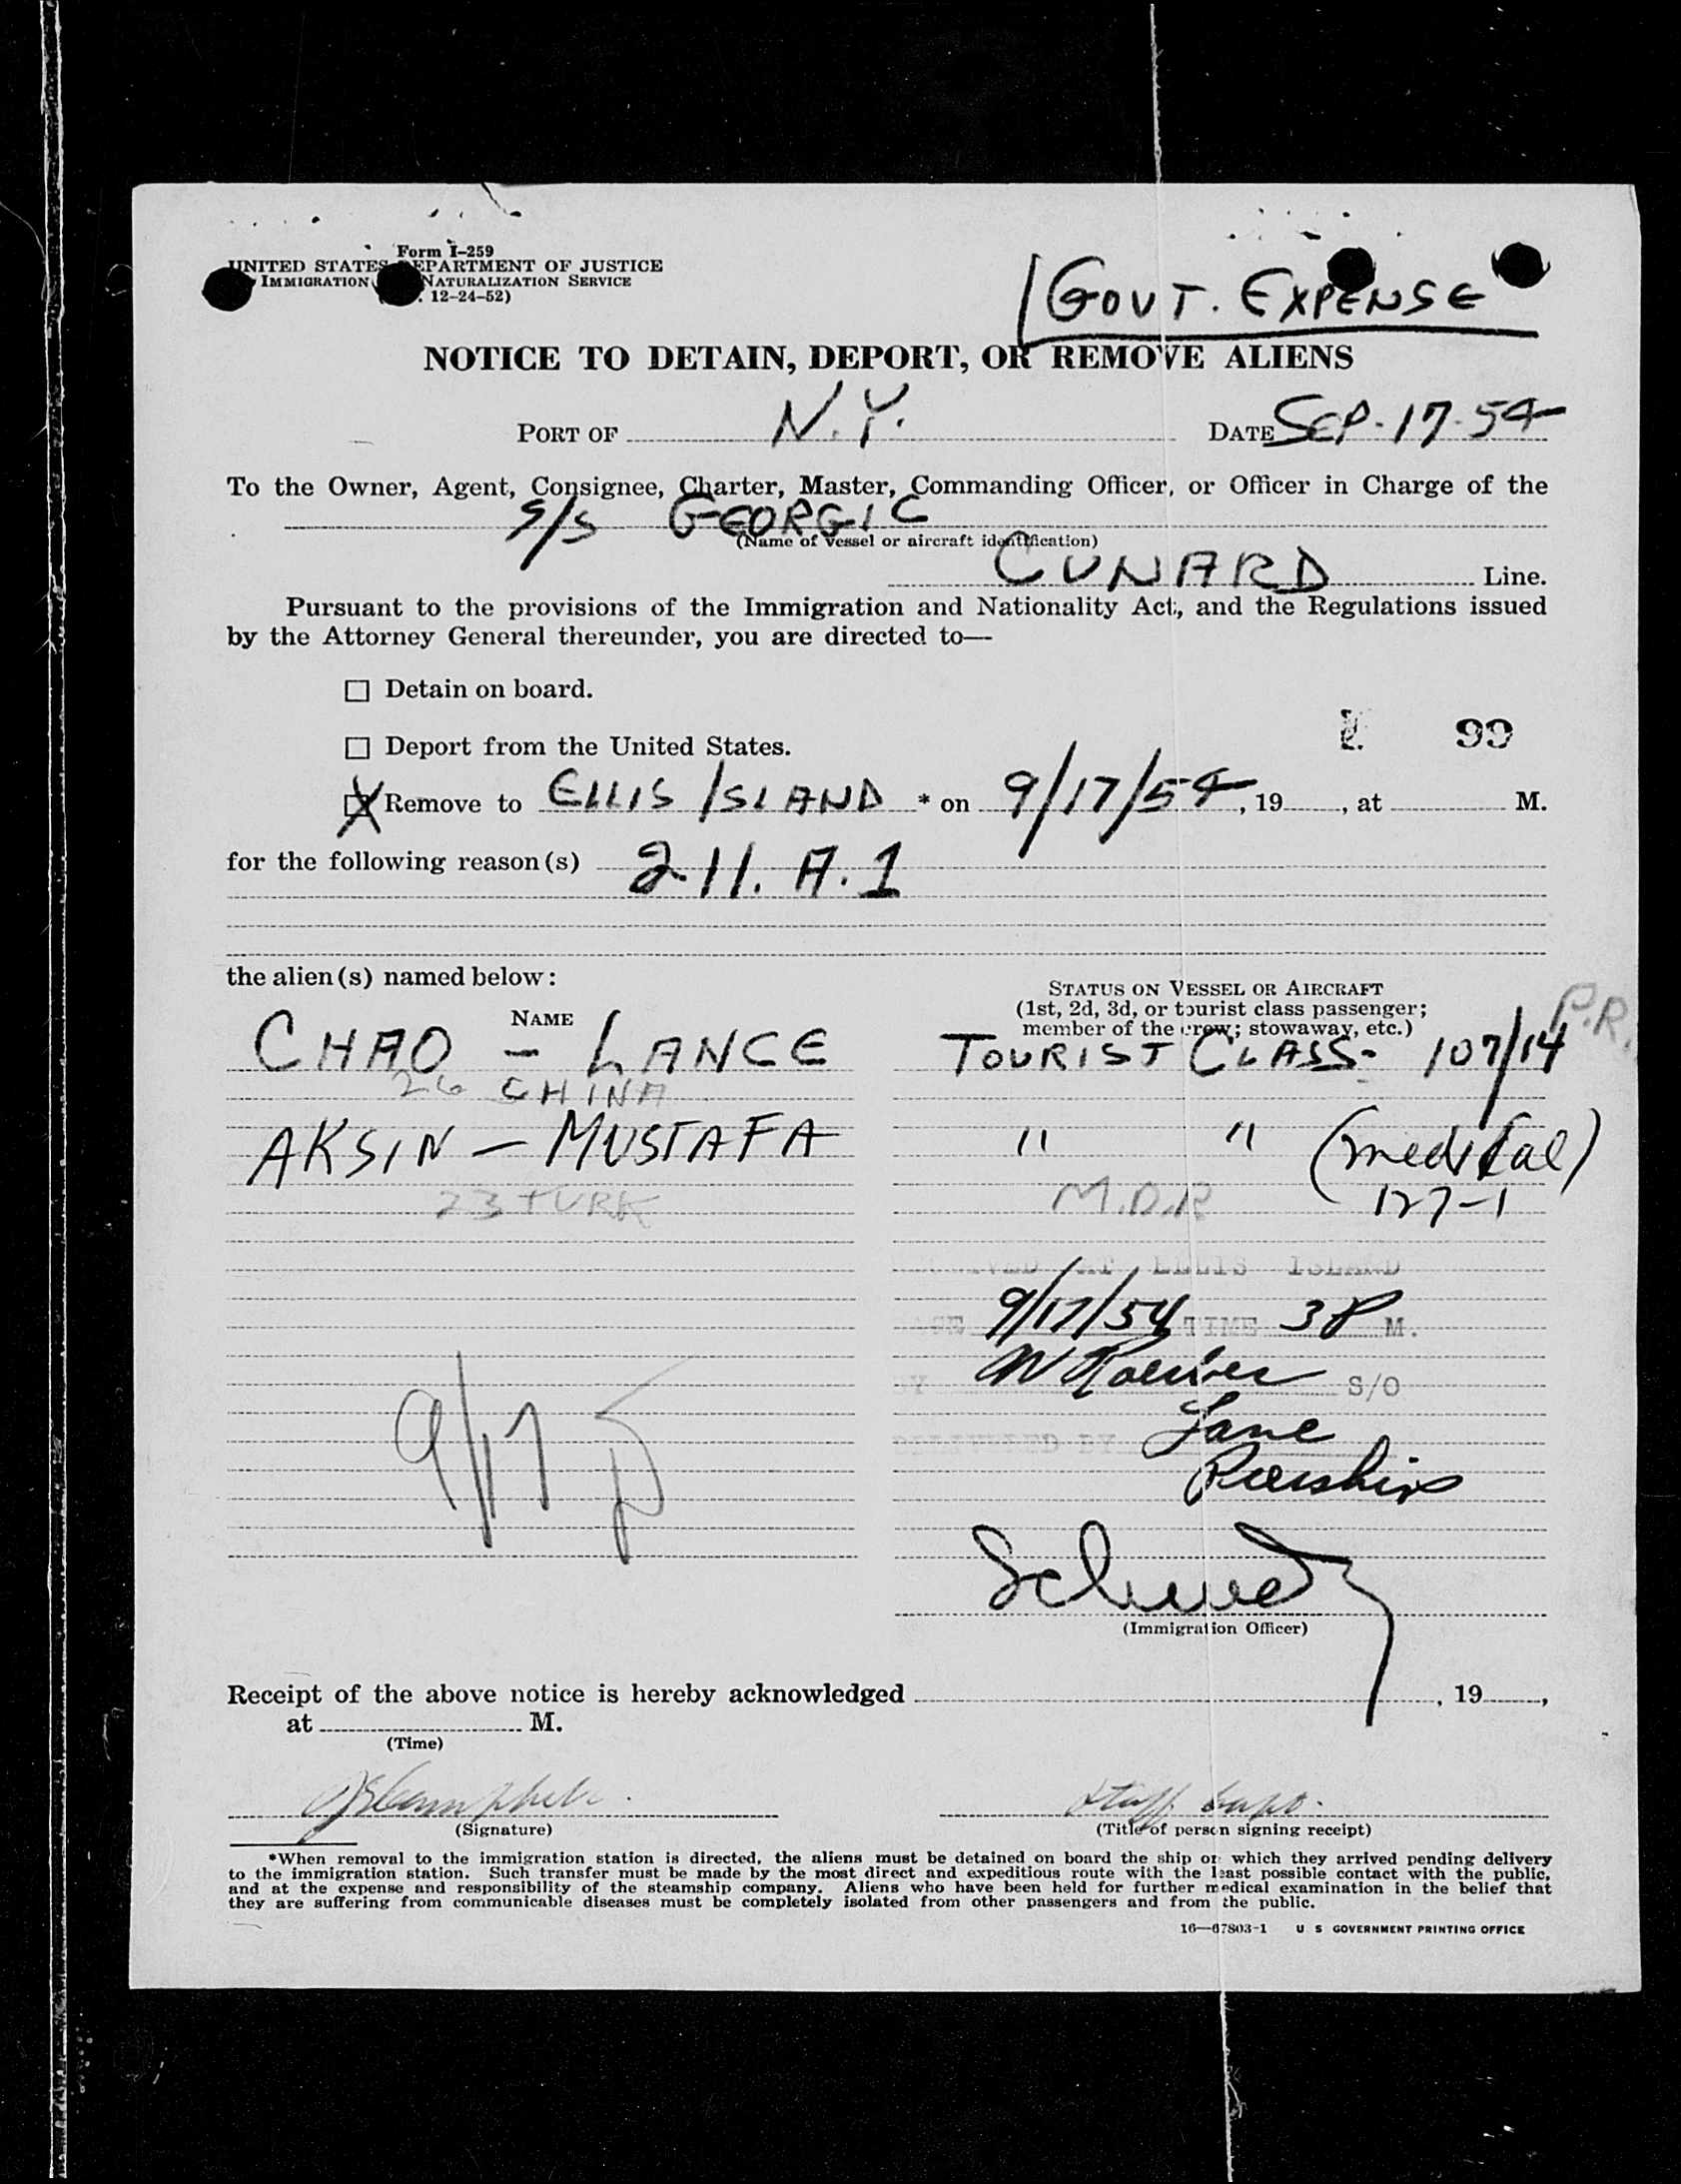 Form I-259
UNITED STATES DEPARTMENT OF JUSTICE
IMMIGRATION NATURALIZATION SERVICE
12-24-52)
GOVT. EXPENSE
NOTICE TO DETAIN, DEPORT, OR REMOVE ALIENS
PORT OF N.Y. DATE SEP-17-54
To the Owner, Agent, Consignee, Charter, Master, Commanding Officer, or Officer in Charge of the
S/S GEORGIC
(Name of vessel or aircraft identification)
CUNARD Line.
Pursuant to the provisions of the Immigration and Nationality Act, and the Regulations issued
by the Attorney General thereunder, you are directed to—
☐ Detain on board.
☐ Deport from the United States.
99
☒ Remove to ELLIS ISLAND * on 9/17/54, 19 , at M.
for the following reason(s) 211. A. 1
the alien(s) named below:
STATUS ON VESSEL OR AIRCRAFT
(1st, 2d, 3d, or tourist class passenger;
member of the crew; stowaway, etc.)
P.R.
NAME
CHAO - LANCE TOURIST CLASS- 107/14
26 CHINA
AKSIN - MUSTAFA " " (medical)
23 TURK M.D.R 127-1
AT ELLIS ISLAND
9/17/54 TIME 3P M.
S/O
Lane
9/17
(Immigration Officer)
Receipt of the above notice is hereby acknowledged , 19 ,
at M.
(Time)
(Signature) (Title of person signing receipt)
*When removal to the immigration station is directed, the aliens must be detained on board the ship on which they arrived pending delivery
to the immigration station. Such transfer must be made by the most direct and expeditious route with the least possible contact with the public,
and at the expense and responsibility of the steamship company. Aliens who have been held for further medical examination in the belief that
they are suffering from communicable diseases must be completely isolated from other passengers and from the public.
16—67803-1 U S GOVERNMENT PRINTING OFFICE